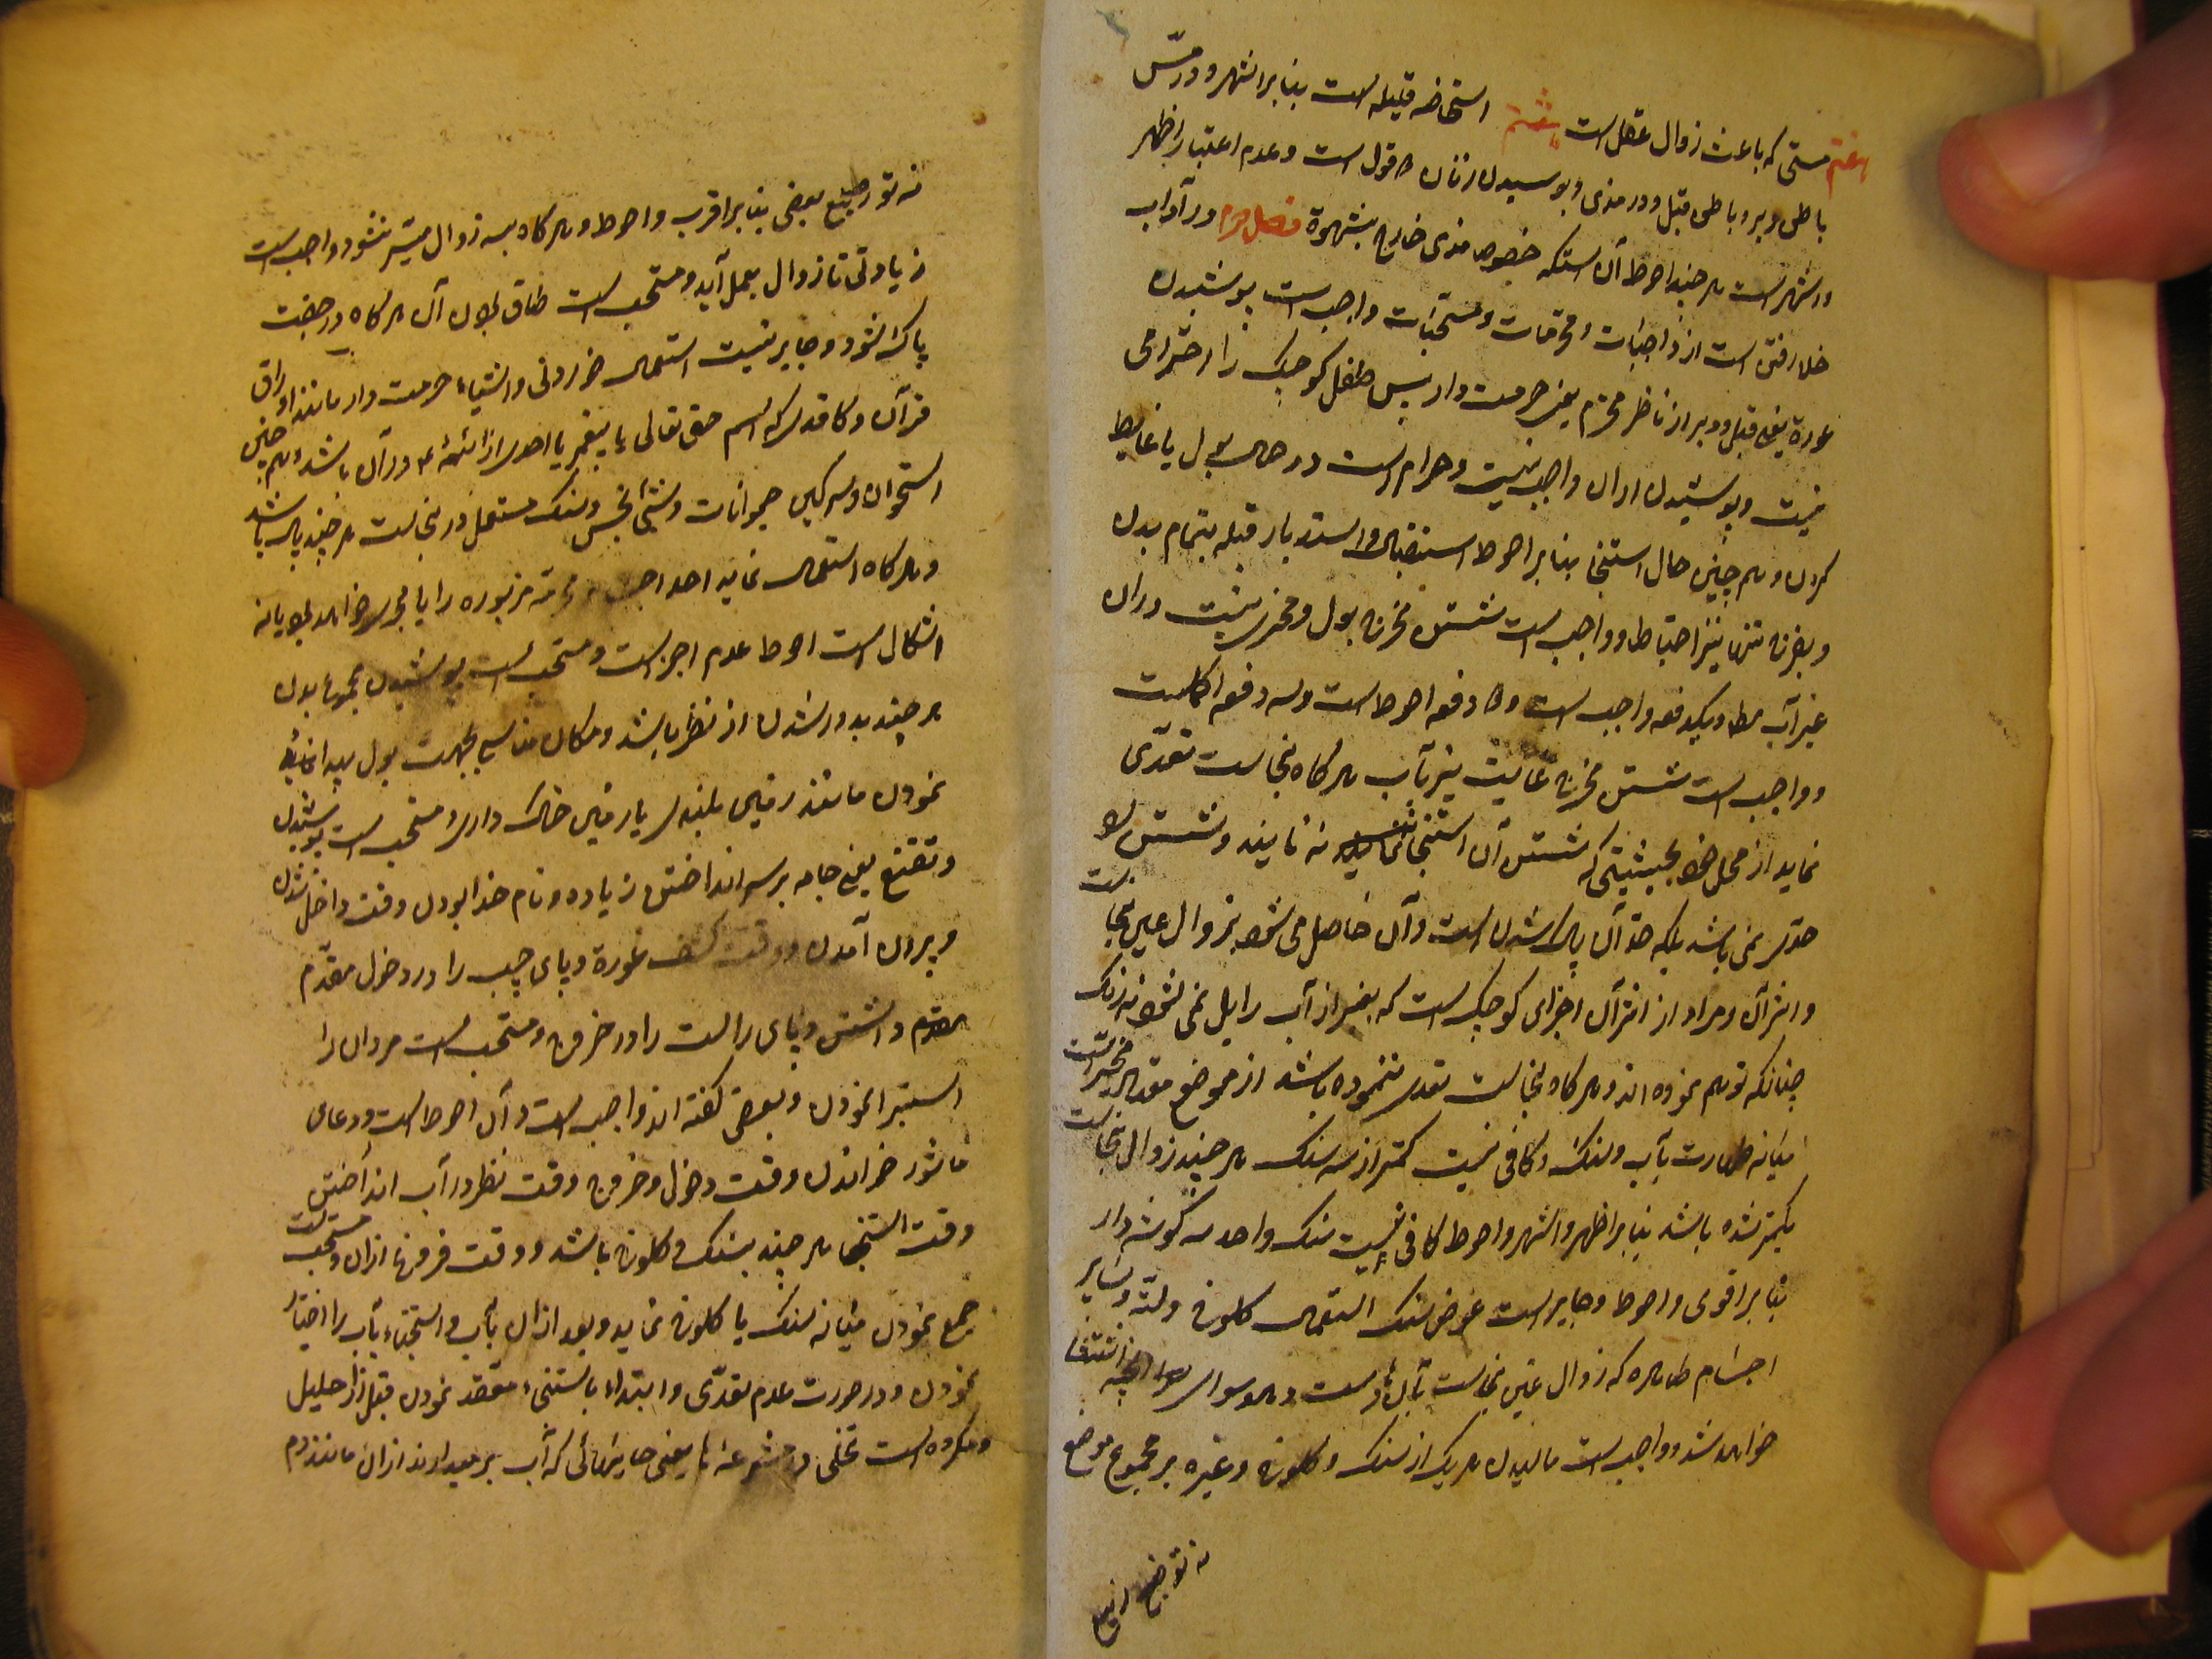 هفتم مستی که باعث زوال عقل است هشتم استحاضه قلیله است بنابر اشهر و در مسّ
باطن دبر و باطن قبل و در مذی و بوسیدن زنان دو قول است و عدم اعتبار اظهر
و اشهر است هر چند احوط آن استکه خصوص مذی خارج بشهوة فصل دوم در آداب
خلا رفتن است از واجبات و محرّمات و مستحبّات واجب است پوشیدن
عورة یعنی قبل و دبر از ناظر محترم یعنی حرمت دار پس طفل کوچک را احترامی
نیست و پوشیدن از آن واجب نیست و حرام است در حال بول یا غایط
کردن و هم چنین حال استنجا بنابر احوط استقبال و استدبار قبله بتمام بدن
و بفرج تنها نیز احتیاطا و واجب است شستن مخرج بول و مجزی نیست در آن
غیر آب مطلقا و یکدفعه واجب است و دو دفعه احوط است و سه دفعه اکمل است
و واجب است شستن مخرج غایت نیز بآب هر کاه نجاست تعدّی
نماید از محل خود بحیثیتی که شستن آن استنجا نه نامند و شستن را
حدّی نمی باشد بلکه حدّ آن پاک شدن است و آن حاصل می شود بزوال عین نجاست
و اثر آن و مراد از اثر آن اجزای کوچک است که بغیر از آب زایل نمی شود نه رنک
چنانکه توهم نموده اند و هر کاه نجاست تعدی ننموده باشد از موضع معتاد مخیر است
میانه طهارت بآب و سنک و کافی نیست کمتر از سه سنک هر چند زوال نجاست
بکمتر شده باشد بنابر اظهر و اشهر و احوط کافی نیست سنک واحد سه کوشه دار
بنابر اقوی و احوط و جایز است عوض سنک استعمال کلوخ و لتّه و سایر
اجسام طاهره که زوال عین نجاست بآن
خواهد شد و واجب است مالیدن هر یک از سنک و کلوخ و غیره بر مجموع موضع
نه توضیع
نه توضیع بعضی بنابر اقرب و احوط و هر کاه بسه زوال میسّر نشود واجب است
زیادتی تا زوال بعمل آید و مستحب است طاق بودن آن هر کاه در جفت
پاک نشود و جایز نیست استعمال خوردنی و اشیاء حرمت دار مانند اوراق
قرآن و کاغذی که اسم حق تعالی یا پیغمبر یا احدی از ائمّه ع در آن باشد و هم چنین
استخوان و سرکین حیوانات و شئ نجس و سنک مستعمل در نجاست هر چند پاک باشد
و هر کاه استعمال نماید احد محرّمه مزبوره را آیا مجزی خواهد بود یا نه
اشکال است احوط عدم اجزاست و مستحب است پوشیدن مجموع بدن
هر چند بدور شدن از نظر باشد و مکان مناسبی بجهت بول پیدا
نمودن مانند زمین بلندی یا زمین خاک داری و مستحب است پوشیدن سر
و تقنّع یعنی جامه بر سر انداختن زیاده و نام خدا بردن وقت داخل شدن
و بیرون آمدن و وقت کشف عورة و پای چپ را در دخول مقدّم
داشتن و پای راست را در خروج و مستحب است مردان را
استبرا نمودن و بعضی کفته اند واجب است و آن احوط است و دعای
ماثور خواندن وقت دخول و خروج و وقت نظر در آب انداختن
وقت استنجا هر چند بسنک و کلوخ باشد و وقت فروغ از آن و مستحب است
جمع نمودن میانه سنک یا کلوخ نماید و بعد از آن بآب و استنجاء بآب را اختیار
نمودن و در صورت عدم تعدّی و ابتداء باستنجاء مقعد نمودن قبل از احلیل
و مکروه است تخلی در مشرعه ها یعنی جاهائی که آب بر میدارند از آن مانند دم